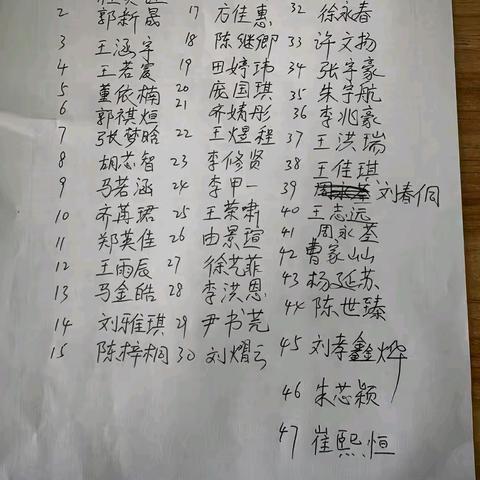 2 郭新晟 17 方佳惠 32 徐永春
3 王涵宇 18 陈继卿 33 许文扬
4 王若爱 19 田婷玮 34 张宇豪
5 董依楠 20 庞国琪 35 朱宇航
6 郭祺烜 21 齐婧彤 36 李兆豪
7 张梦晗 22 王煜程 37 王洪瑞
8 胡芯智 23 李修贤 38 王佳琪
9 马若涵 24 李甲一 39 刘春侗
10 齐苒珺 25 王荣啸 40 王志远
11 郑英佳 26 由景瑄 41 周永荃
12 王雨辰 27 徐艺菲 42 曹家屾
13 马金皓 28 李洪恩 43 杨延苏
14 刘雅琪 29 尹书芫 44 陈世臻
15 陈梓桐 30 刘熠云 45 刘孝鑫烨
46 朱芯颖
47 崔熙恒